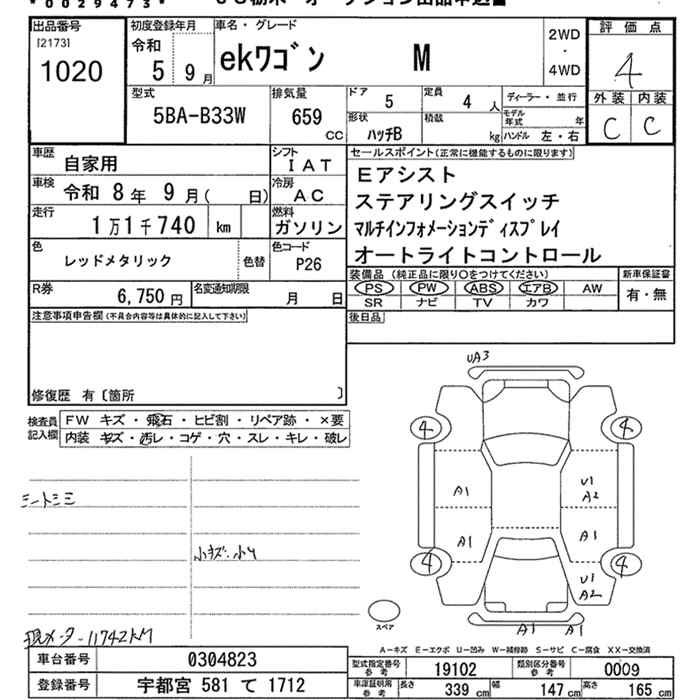 *0029473*
出品番号
[2173]
1020
初度登録年月
令和
5 9月
車名・グレード
ekワゴン M
2WD
・
4WD
評価点
4
外装 内装
C C
型式
5BA-B33W
排気量
659
CC
ドア 5
定員 4人
ディーラー・並行
形状 ハッチB
積載 kg
モデル年式 年
ハンドル 左・右
車歴 自家用
シフト IAT
車検 令和 8年 9月( 日)
冷房 AC
走行 1万1千740 km
燃料 ガソリン
色 レッドメタリック
色替
色コード P26
R券 6,750円
名変通知期限 月 日
セールスポイント(正常に機能するものに限ります)
Eアシスト
ステアリングスイッチ
マルチインフォメーションディスプレイ
オートライトコントロール
装備品(純正品に限り○をつけてください)
PS PW ABS エアB AW
SR ナビ TV カワ
新車保証書
有・無
注意事項申告欄(不具合内容等は具体的に記入して下さい)
後日品
修復歴 有〔箇所 〕
検査員記入欄
FW キズ・飛石・ヒビ割・リペア跡・×要
内装 キズ・汚レ・コゲ・穴・スレ・キレ・破レ
シートシミ
小キズ・小凹
現メーター11742KM
UA3
4 4
A1 U1 A2
A1 A1
4 4
U1 A2
A1 A1
スペア
A-キズ E-エクボ U-凹み W-補修跡 S-サビ C-腐食 XX-交換済
車台番号 0304823
登録番号 宇都宮 581 て 1712
型式指定番号参考 19102
類別区分番号参考 0009
車庫証明席参考
長さ 339cm
幅 147cm
高さ 165cm